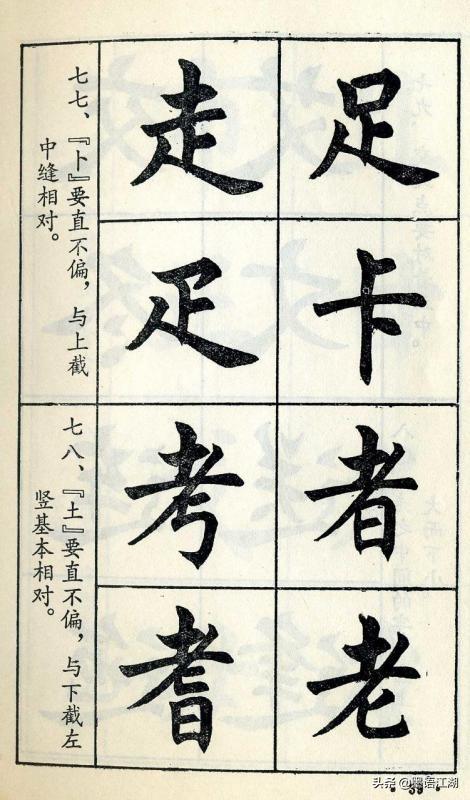 足卡
走疋
七七、『卜』要直不偏，与上截
中缝相对。
者老
考耆
七八、『土』要直不偏，与下截左
竖基本相对。
头条 @墨语江湖